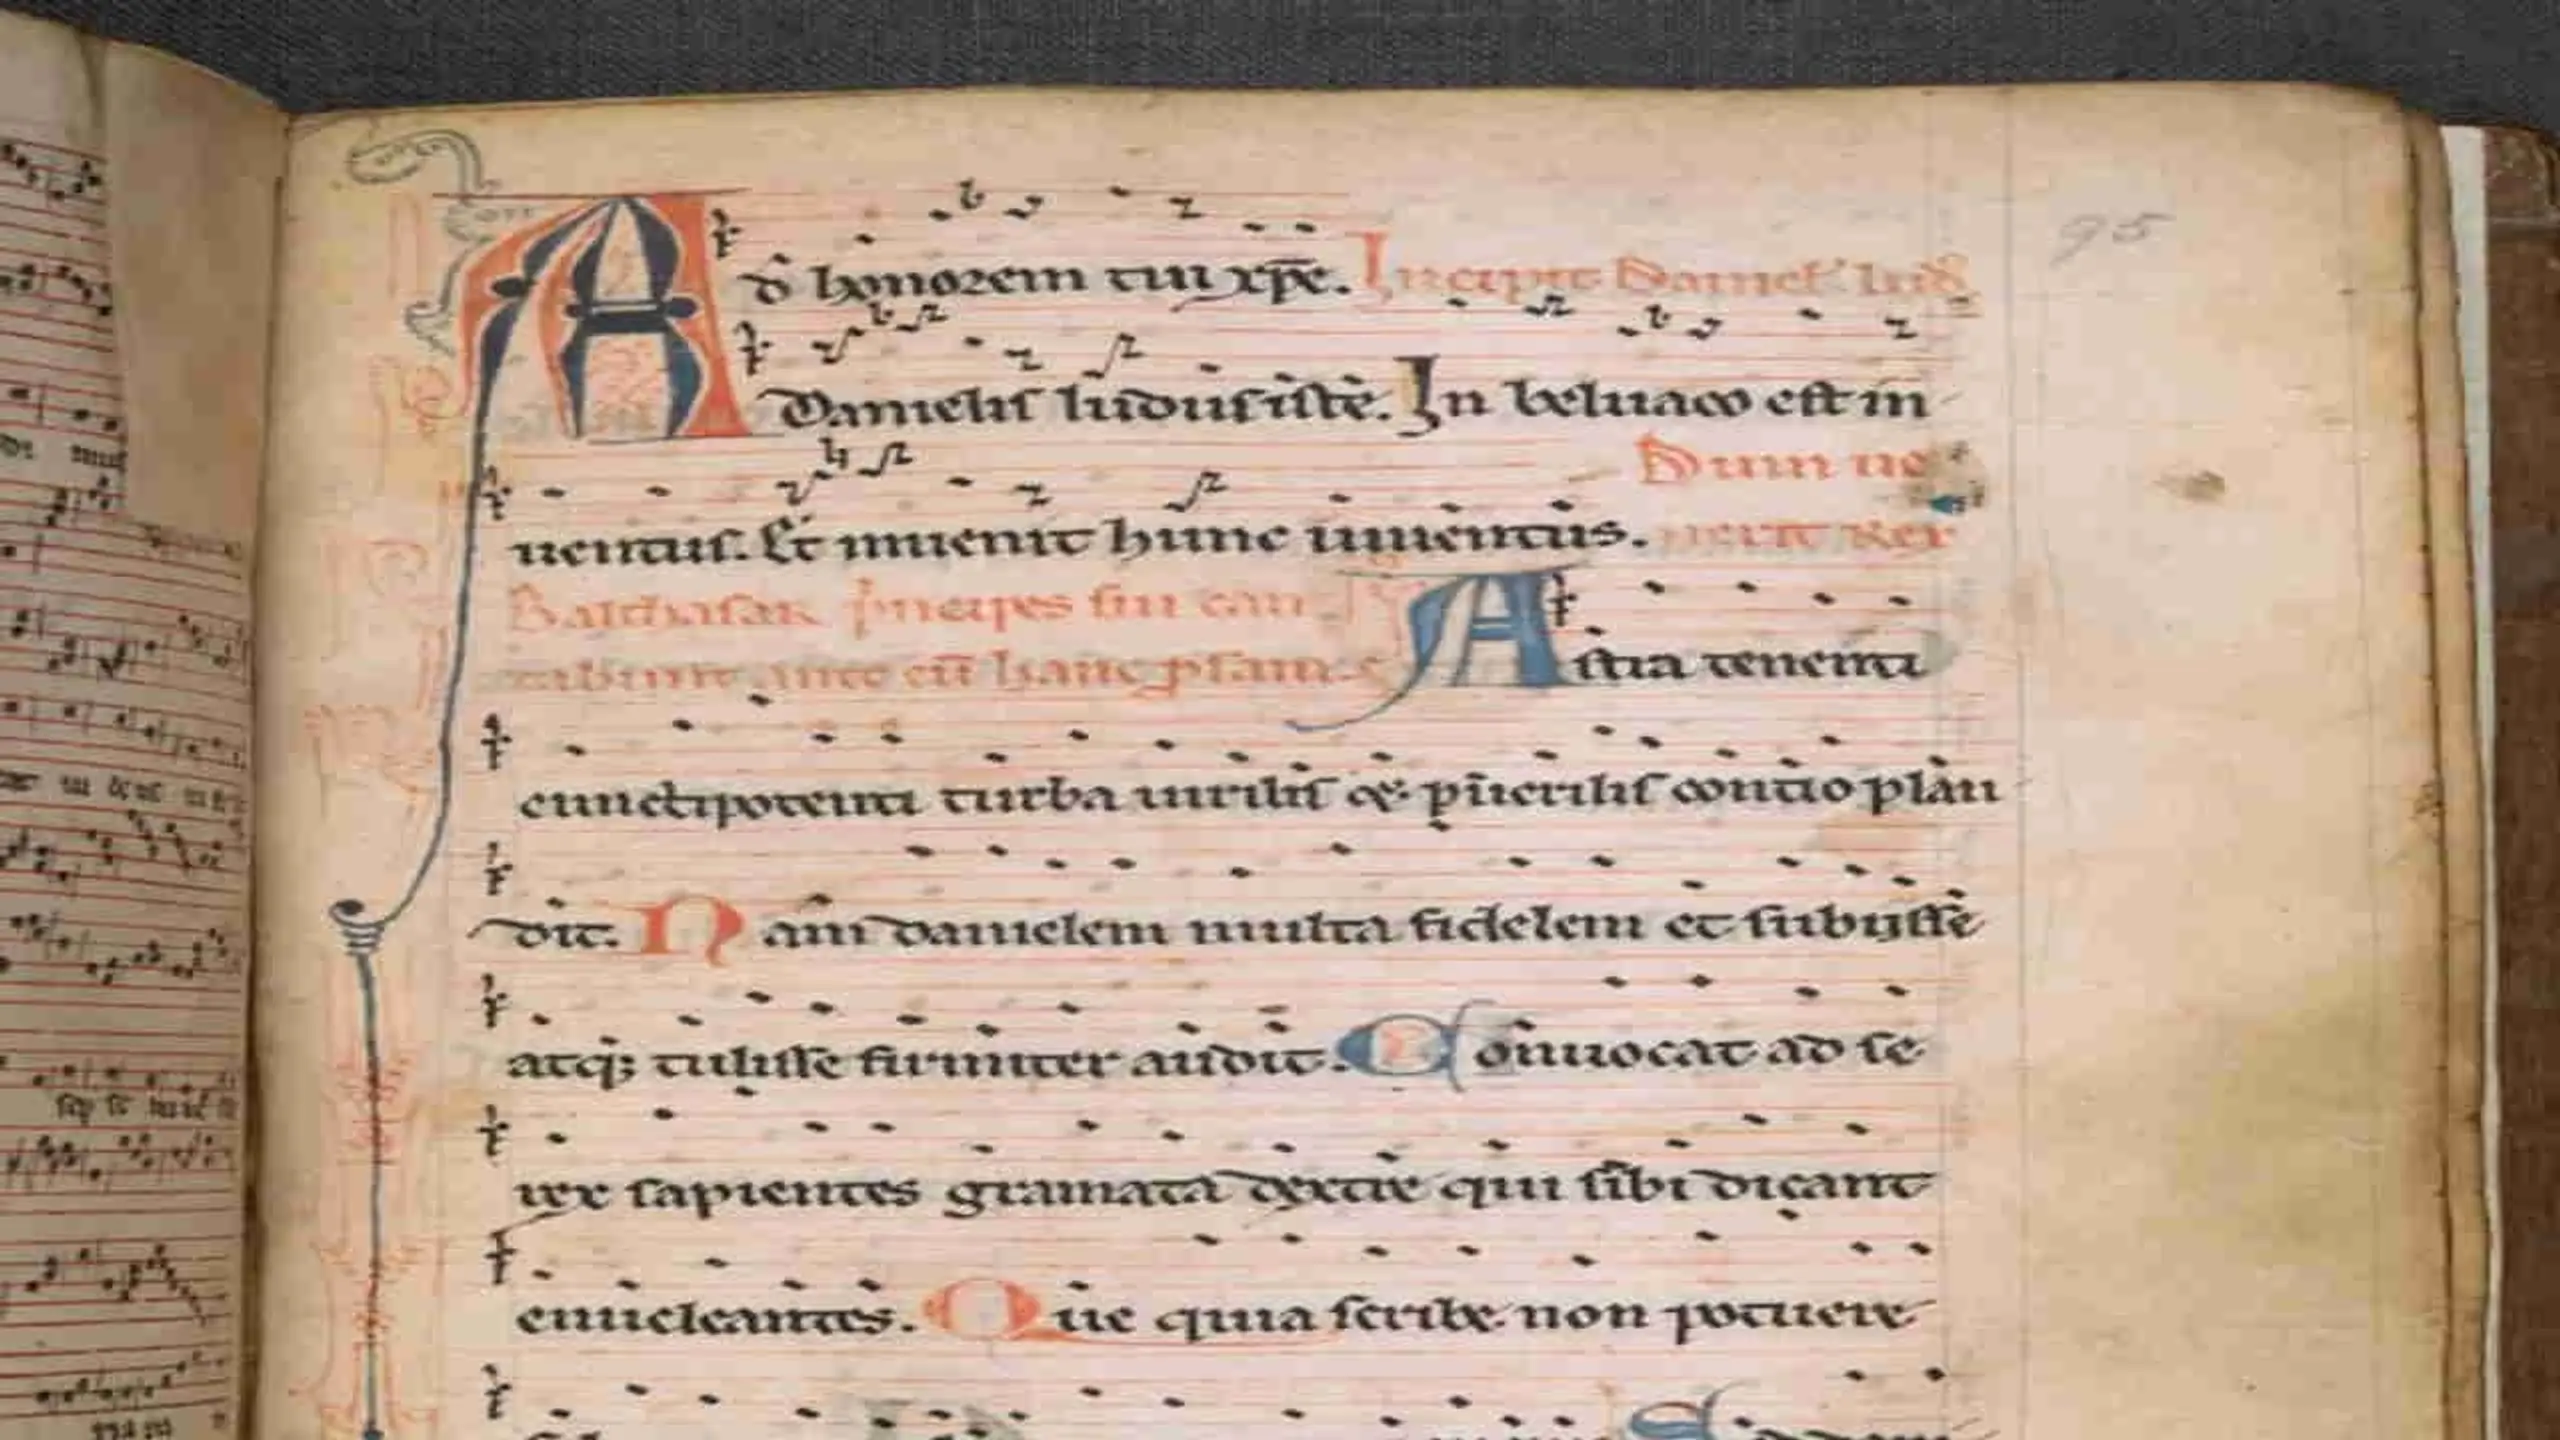 95
Ad honorem tui xpe. Incipit Danielis lud9
Danielis ludus iste. In beluaco est in
Dum ue
uentus. Et inuenit hunc iuuentus. nerit Rex
Balthasar principes sui can
tabunt ante eu hanc psam
Astra tenenti
cunctipotenti turba uirilis & puerilis contio plau
dit. Nam danielem multa fidelem et subiisse
atq; tulisse firmiter audit. Conuocat ad se
rex sapientes gramata dextre qui sibi dicant
enucleantes. Que quia scribe non potuere